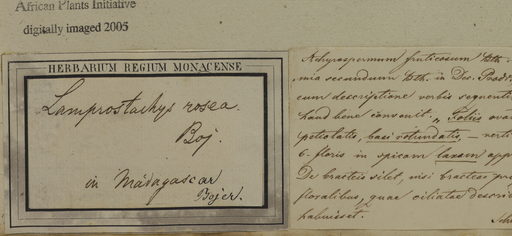 African Plants Initiative
digitally imaged 2005
HERBARIUM REGIUM MONACENSE
Lamprostachys rosea.
Boj.
in Madagascar
Bojer.
Achyrospermum fruticosum Bth.
mia secundum Bth. in Dec. Prodr
cum descriptione verbis sequenti
haud bene convenit. „Foliis ova
petiolatis, basi rotundatis, – verti
6-floris in spicam laxam app
De bracteis silet, nisi bracteae
floralibus, quae ciliatae descri
habuisset.
Sch